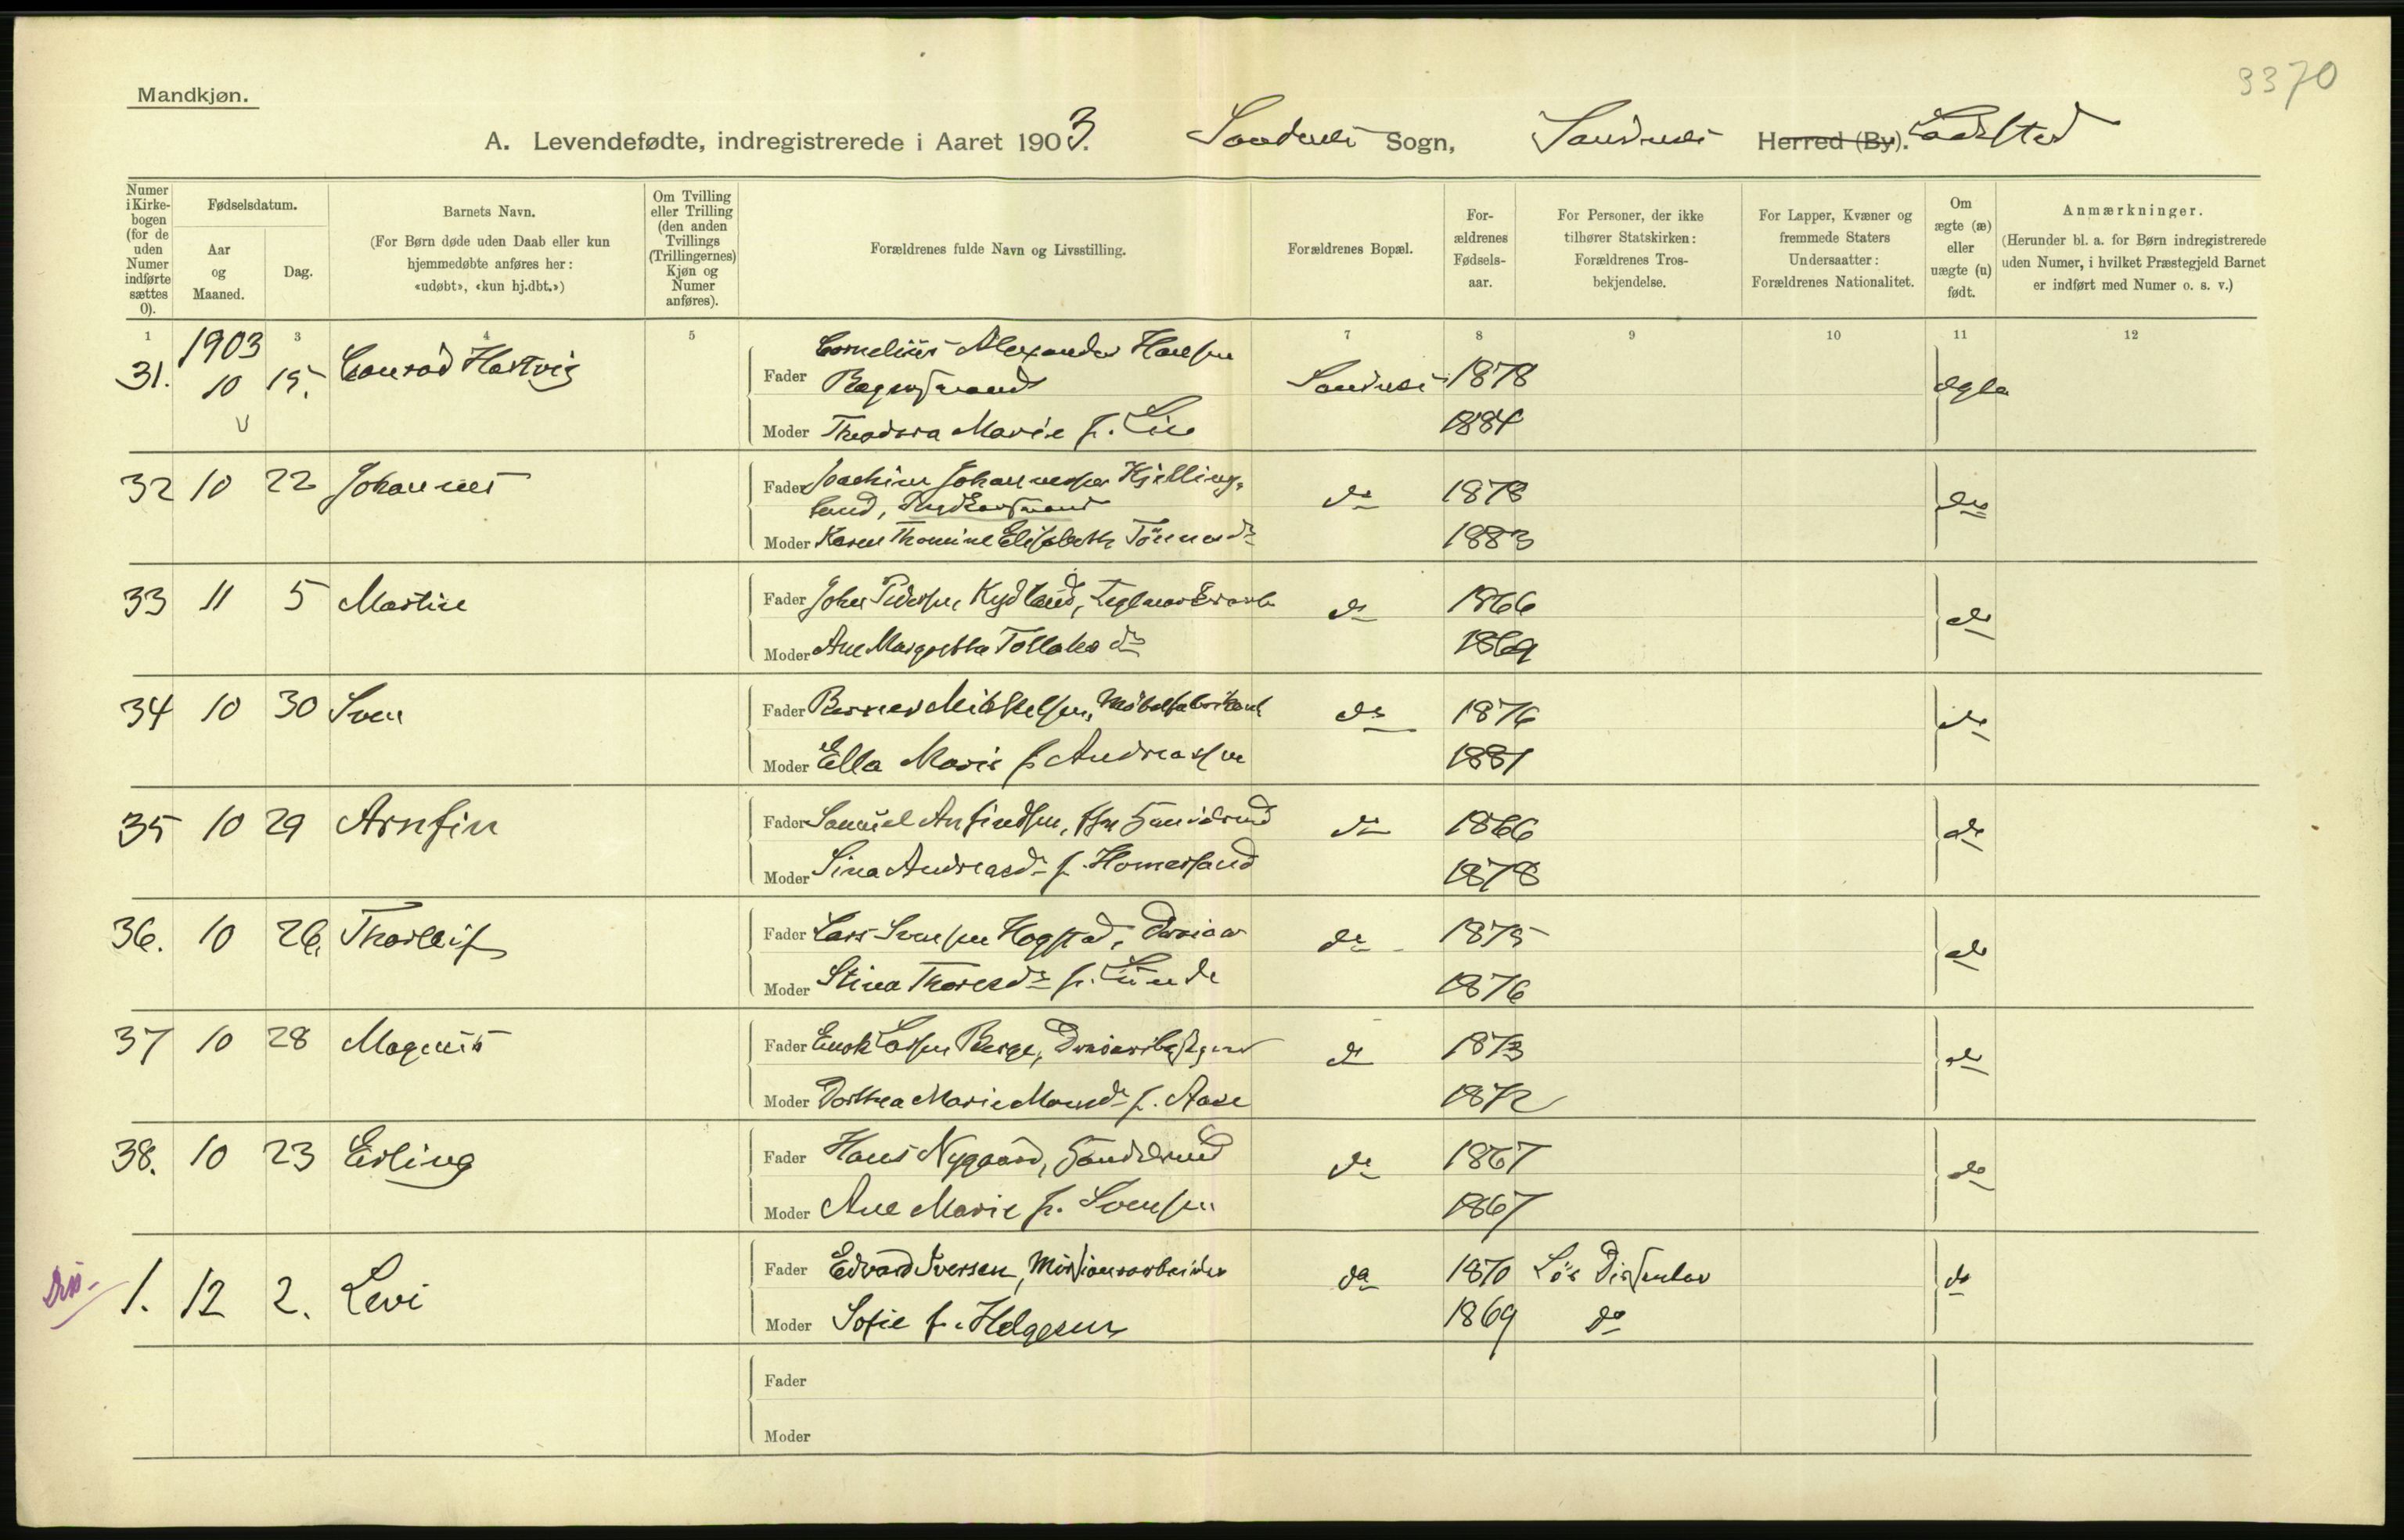 3370
Mandkjøn.
A. Levendefødte, indregistrerede i Aaret 1903. Sandnes Sogn, Sandnes Herred (By). Ladested
Numer i Kirkebogen (for de uden Numer indførte sættes 0).
Fødselsdatum.
Aar og Maaned.
Dag.
Barnets Navn.
(For Børn døde uden Daab eller kun hjemmedøbte anføres her: «udøbt», «kun hj.dbt.»)
Om Tvilling eller Trilling (den anden Tvillings (Trillingernes) Kjøn og Numer anføres).
Forældrenes fulde Navn og Livsstilling.
Forældrenes Bopæl.
For-ældrenes Fødsels-aar.
For Personer, der ikke tilhører Statskirken: Forældrenes Tros-bekjendelse.
For Lapper, Kvæner og fremmede Staters Undersaatter: Forældrenes Nationalitet.
Om ægte (æ) eller uægte (u) født.
Anmærkninger.
(Herunder bl. a. for Børn indregistrerede uden Numer, i hvilket Præstegjeld Barnet er indført med Numer o. s. v.)
1 3 4 5 7 8 9 10 11 12
1903
31. 10 15. Conrad Hartvig Fader Cornelius Alexander Hansen
Sandnes 1878 ægte
Moder Theodora Marie f. Lie 1884
32 10 22 Johannes Fader Joachim Johannessen Kjelling-
land, do 1878 do
Moder Karen Thomine Elisabeth Tönnesdr 1883
33 11 5 Martin Fader John Pedersen Kydland, do 1866 do
Moder Ane Margretha Tollaksdr 1869
34 10 30 Sven Fader Berner Mikkelsen, Möbelfabrikant do 1876 do
Moder Ella Marie f. Andreassen 1881
35 10 29 Arnfin Fader Samuel Anfindsen, do 1866 do
Moder Sina Andreasdr f. Homersand 1878
36. 10 26. Thorleif Fader Lars Svensen Hogstad, Dreier do 1875 do
Moder Stina Thoresdr f. Lunde 1876
37 10 28 Magnus Fader Enok Larsen Berge, do 1873 do
Moder Dorthea Marie f. Aase 1872
38. 10 23 Erling Fader Hans Nygaard, do 1867 do
Moder Ane Marie f. Svensen 1867
Dis. 1. 12 2. Levi Fader Edvard Iversen, Missionsarbeider do 1870 Lös Dissenter do
Moder Sofie f. Helgesen 1869 do
Fader
Moder